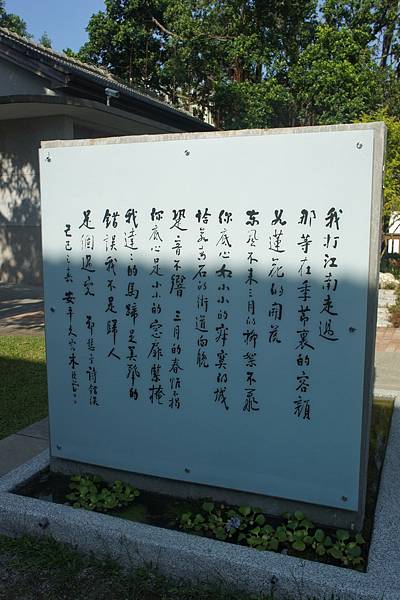 我打江南走過
那等在季節裏的容顏
如蓮花的開落
東風不來三月的柳絮不飛
你底心如小小的寂寞的城
恰若青石的街道向晚
跫音不響 三月的春帷不揭
你底心是小小的窓扉緊掩
我達達的馬蹄是美麗的
錯誤我不是歸人
是個過客 鄭愁予詩錯誤